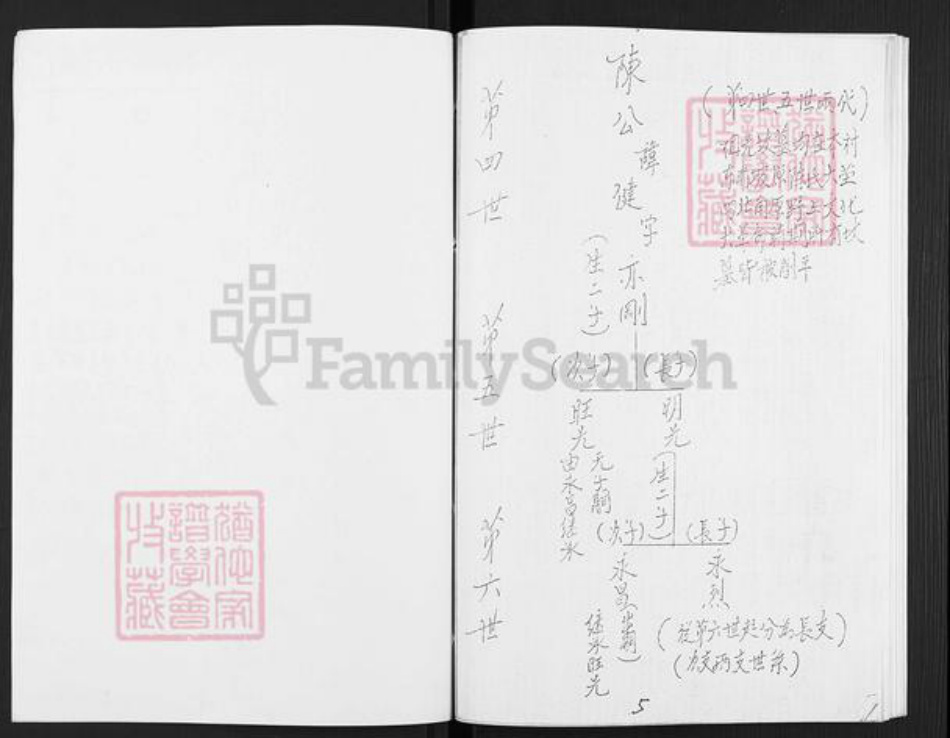 (第四世五世兩代)
祖先坟墓均在本村
墓皆被削平
陳公諱健字亦剛
(生二子)
第四世
(長子)
(次子)
明光
旺光
无子嗣
由永昌继承
(生二子)
第五世
(長子)
(次子)
永烈
永昌
继承旺光
第六世
(從第六世起分為長支)
(次支两支世系)
5
FamilySearch
猶他家
譜學會
收藏
猶他家
譜學會
收藏